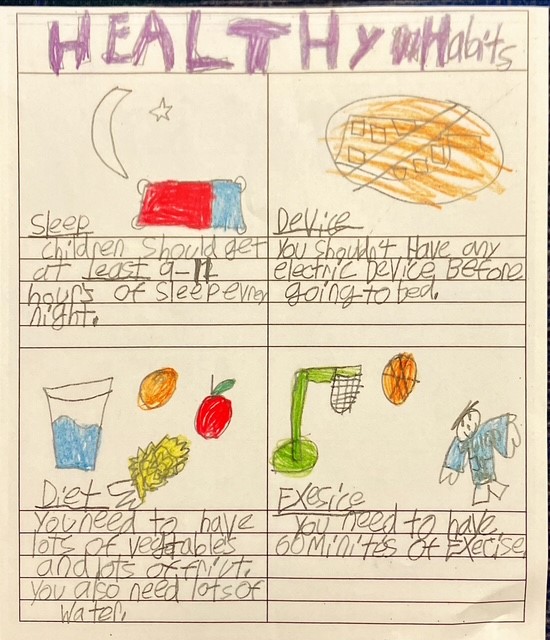 HEALTHy Habits
Sleep
children should get
at least 9-11
hours of sleep evrey
night.
Device
You shouldn't Have any
electric Device Before
going to bed.
Diet
you need to have
lots of vegtables
and lots of friut.
you also need lots of
water.
Exesice
you need to have
60 Minites of Execise.